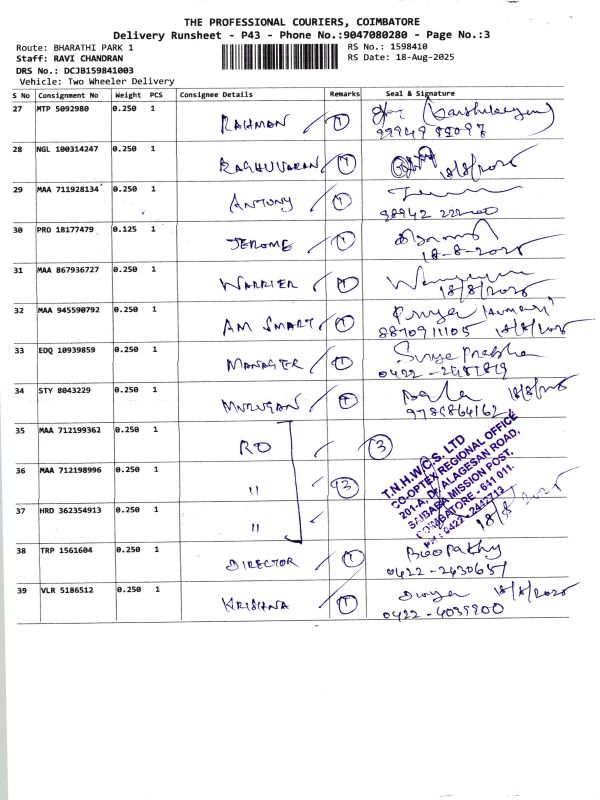 THE PROFESSIONAL COURIERS, COIMBATORE
Delivery Runsheet - P43 - Phone No.:9047080280 - Page No.:3
Route: BHARATHI PARK 1 RS No.: 1598410
Staff: RAVI CHANDRAN RS Date: 18-Aug-2025
DRS No.: DCJB159841003
Vehicle: Two Wheeler Delivery
S No Consignment No Weight PCS Consignee Details Remarks Seal & Signature
27 MTP 5092980 0.250 1 RAHMAN 1
28 NGL 100314247 0.250 1 RAGHUVARAN 1 18/8/2025
29 MAA 711928134 0.250 1 ANTONY 1
98942 22200
30 PRO 18177479 0.125 1 JEROME 1
18-8-2025
31 MAA 867936727 0.250 1 WARRIER 1
18/8/2025
32 MAA 945590792 0.250 1 AM SMART 1 Priya Kumari
8870911105 18/8/2025
33 EDQ 10939859 0.250 1 MANAGER 1 Surya Prabha
34 STY 8043229 0.250 1 MURUGAN 1 Bala 18/8/2025
9786864162
35 MAA 712199362 0.250 1 RO 3
36 MAA 712198996 0.250 1 " 3
37 HRD 362354913 0.250 1 "
T.N.H.W.C.S. LTD
CO-OPTEX REGIONAL OFFICE
201-A, Dr. ALAGESAN ROAD,
SAIBABA MISSION POST,
COIMBATORE - 641 011.
PH : 0422 - 2442713
18/8/2025
38 TRP 1561604 0.250 1 DIRECTOR 1 Boopathy
0422-2430651
39 VLR 5186512 0.250 1 KRISHNA 1 Divya 18/8/2025
0422-4039200